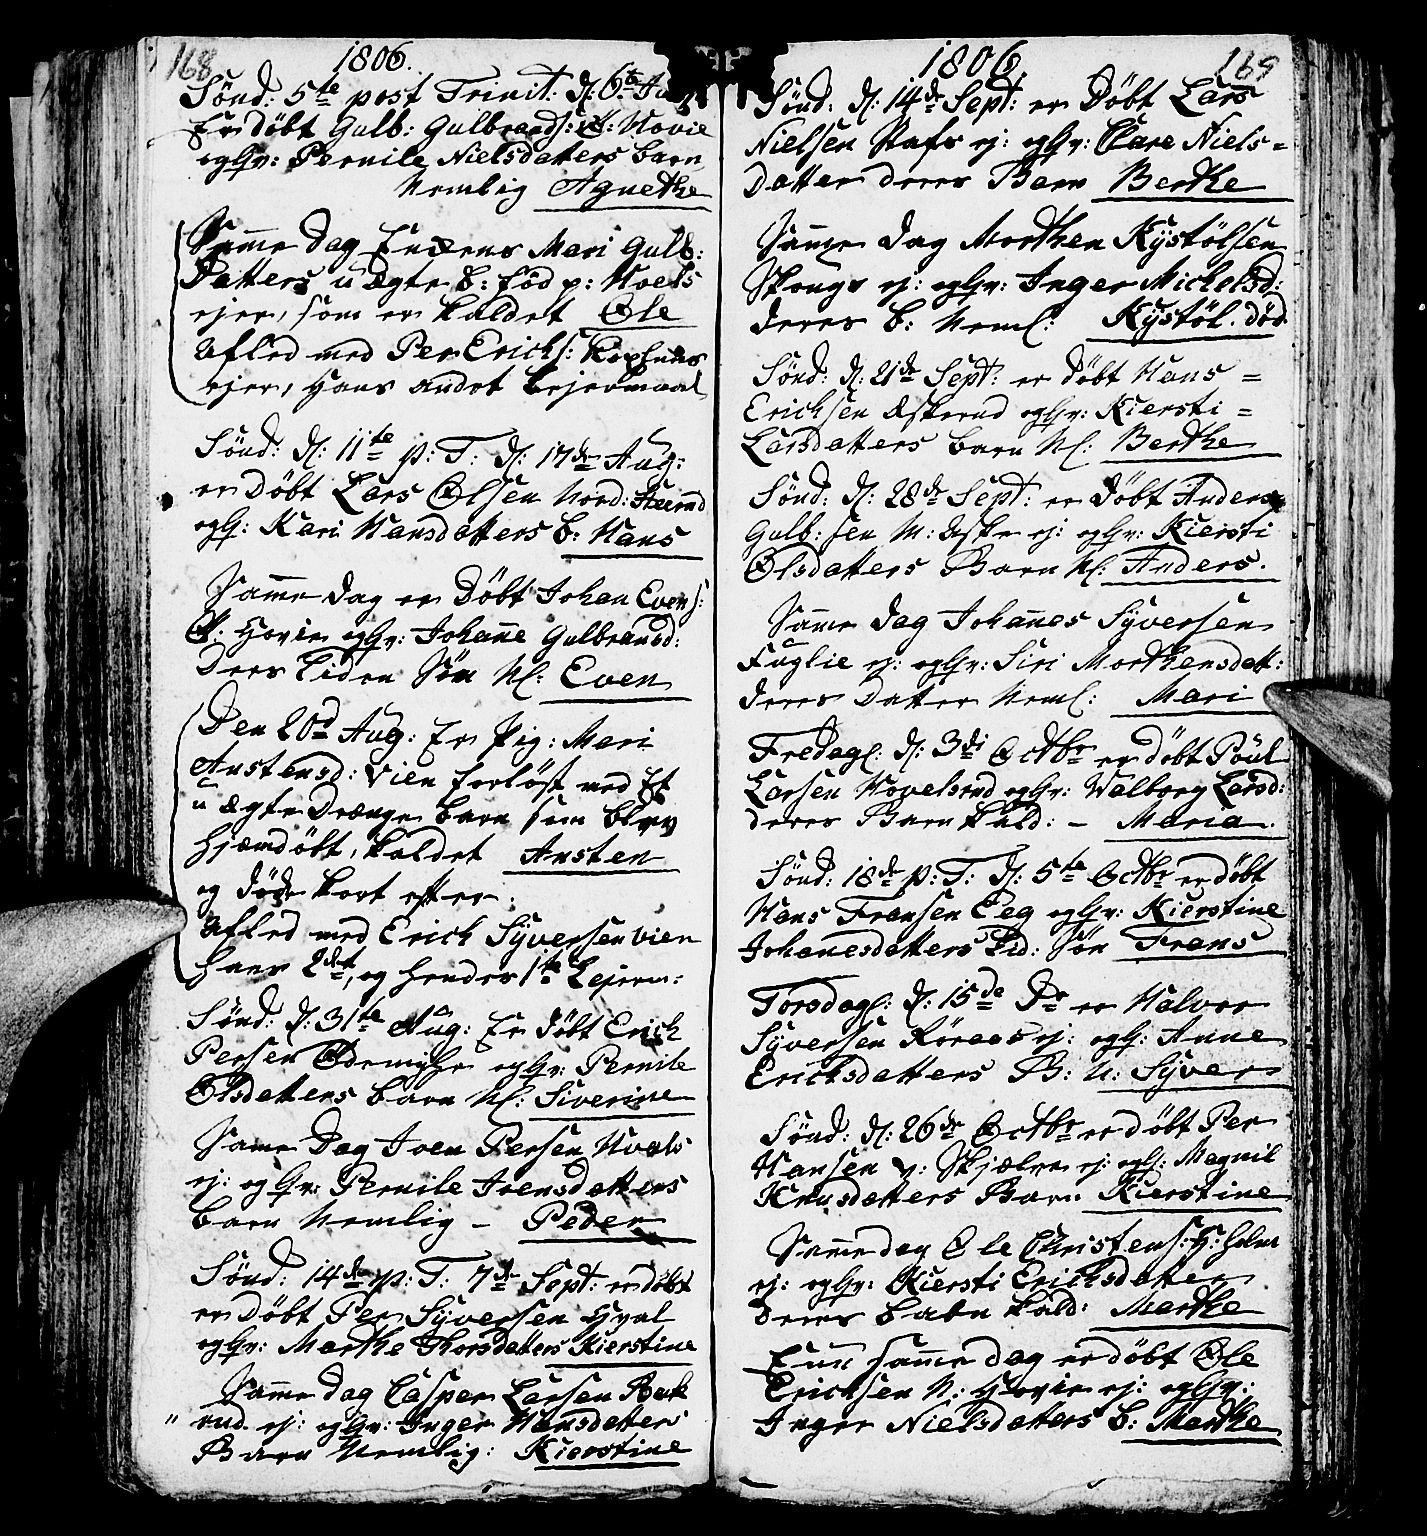 168
1806.
Sønd: 5te post Trinit: d: 6te
Er døbt Gulb: Gulbrands: Hovie
og hv: Pernile Nielsdatters barn
Nemlig Agnethe
Samme Dag Enkens Mari Gulb:
Datters u Ægte b: fød p: Hvals
ejer, som er kaldet Ole
Afled med Per Erichs:
ejer, Hans andet Lejermaal
Sønd: d: 11te p: T: d: 17de Aug:
er Døbt Lars Olsen Nord:
og h: Kari Hansdatters b: Hans
Samme Dag er Døbt Johan Evens:
Hovie og hv: Johanne Gulbransd:
Deres liden Søn Nl: Even
Den 20d Aug: Er Pig: Mari
Anstensd: Vien forløst med Et
u ægte Drænge barn som blev
hjemdøbt, kaldet Ansten
og døde kort efter.
Afled med Erich Syversen Vien
hans 2det, og hendes 1te Lejerm:
Sønd: d: 31te Aug: Er døbt Erich
Persen og hv: Pernile
Olsdatters barn Nl: Siverine
Samme Dag Iven Persen Hvals
ej: og hv: Pernile Ivensdatters
barn Nemlig – Peder
Sønd: 14de p: T: 7de Sept: er døbt
er døbt Per Syversen Hval
og hv: Marthe Thorsdatters Kierstine
Samme Dag Casper Larsen Bak
rud ej: og hv: Inger Hansdatters
Barn Nemlig: Kierstine
169
1806
Sønd: d: 14de Sept: er Døbt Lars
Nielsen ej: og hv: Clare Niels=
Datter deres Barn Berthe
Samme Dag Morthen Kystølsen
Skougs ej: og hv: Inger Michelsd:
deres b: Neml: Kystøl. død
Sønd: d: 21de Sept: er døbt Hans =
Erichsen Askerud og hv: Kiersti =
Larsdatters barn Nl: Berthe
Sønd: d: 28de Sept: er Døbt Anders
Gulb:sen N: Aske ej: og hv: Kiersti
Olsdatters Barn Nl: Anders.
Samme Dag Johannes Syversen
Fuglie ej: og hv: Siri Morthensdatt:
deres Datter Neml: Mari
Fredag: d: 3di Octbr er døbt Poul
Larsen Hovelsrud og hv: Walborg Larsd:
deres Barn kald: – Maria.
Sønd: 18de p: T: d: 5te Octbr er døbt
Hans Fransen Eeg og hv: Kierstine
Johanesdatters lid: Søn Frans
Torsdag: d: 15de Do er Halvor
Syversen Røraas ej: og h: Anne
Erichsdatters B: N: Syver
Sønd: d: 26de Octbr er døbt Per
Hansen v: Skjælve ej: og h: Magnil
Knusdatters Barn Kierstine
Samme dag Ole Christens: H: holm
ej: og hv: Kiersti Erichsdatter
deres barn kald: Marthe
Enn samme dag er døbt Ole
Erichsen N: Hovie ej: og hv:
Inger Nielsdatters b: Marthe